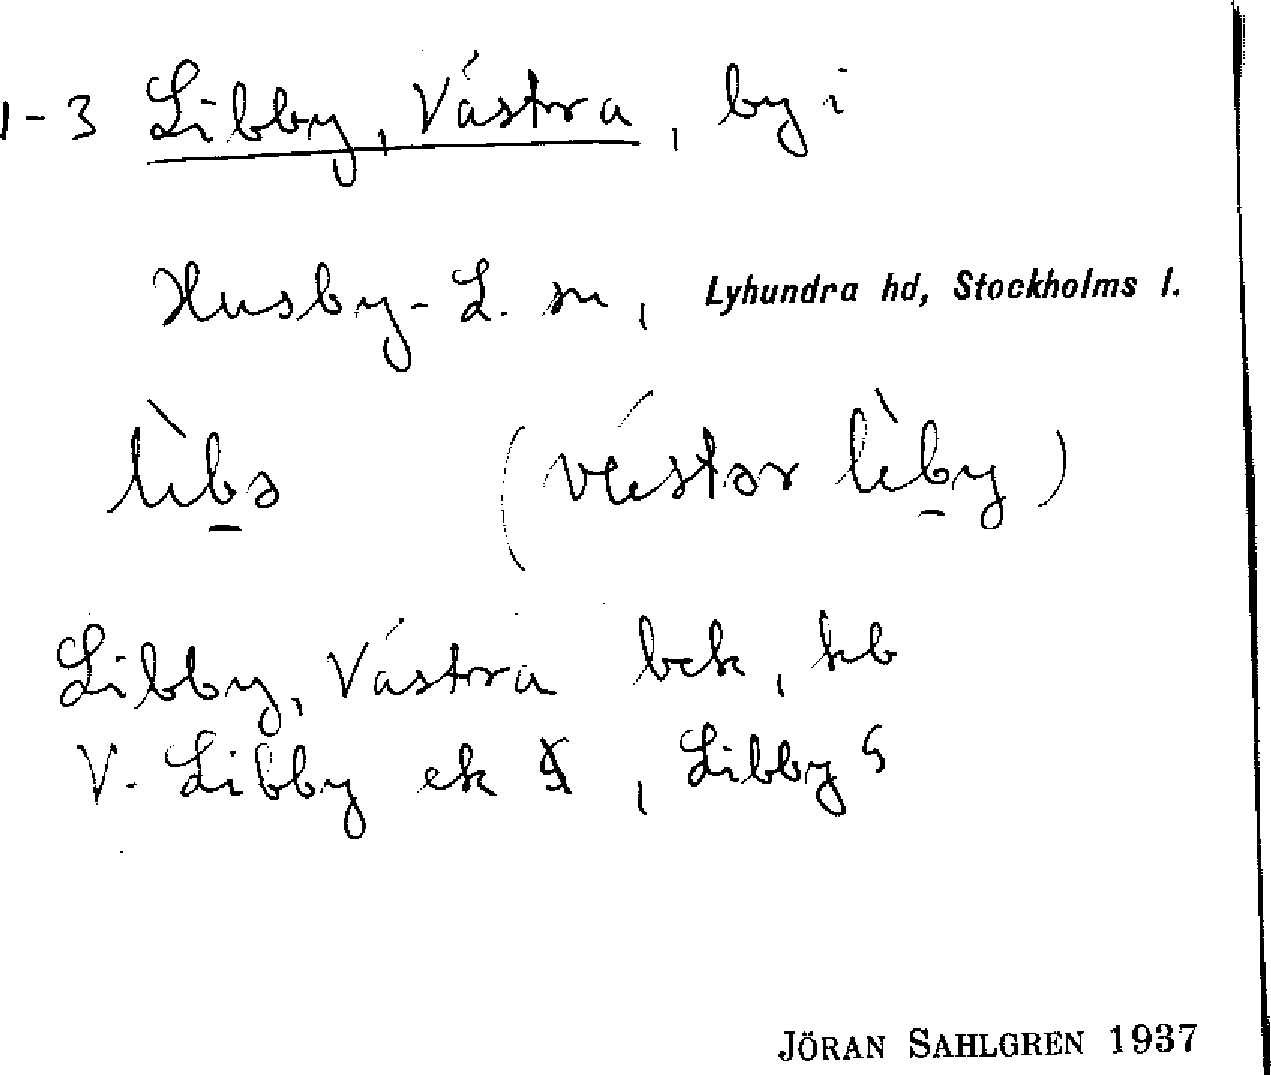 1-3 Libby, Västra, by i
Husby-L. sn, Lyhundra hd, Stockholms l.
lìbə (véstər lìby)
Libby, Västra bck, hb
V. Libby ek, Libby
JÖRAN SAHLGREN 1937